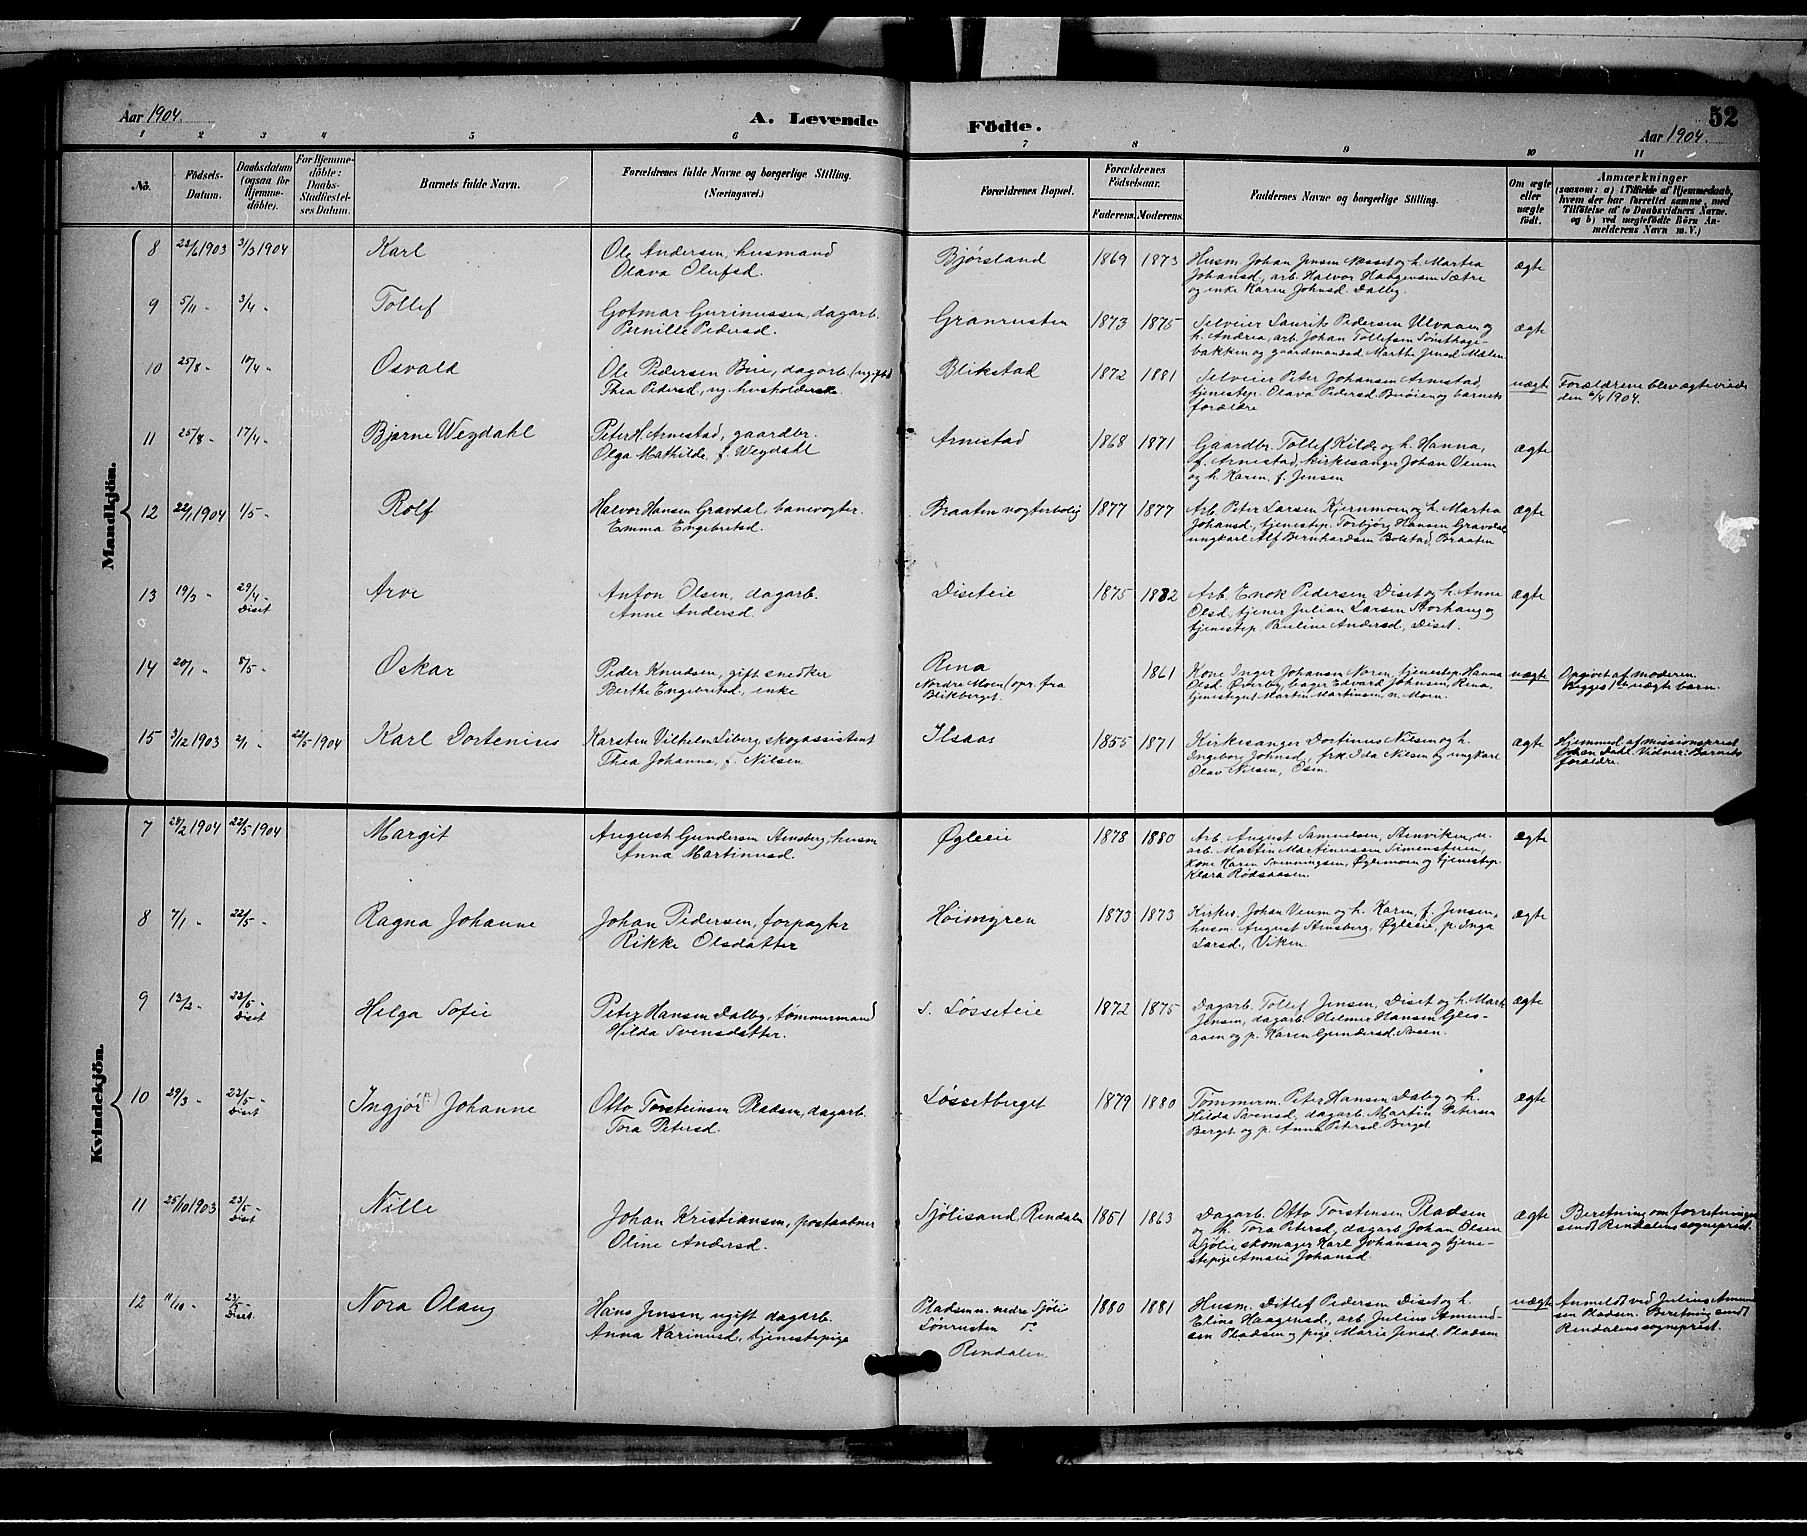 Aar 1904.
A. Levende Födte.
52
Aar 1904.
1 2 3 4 5 6 7 8 9 10 11
No.
Födsels-
Datum.
Daabsdatum
(ogsaa for
Hjemme-
döbte).
For Hjemme-
döbte:
Daabs-
Stadfæstel-
ses Datum.
Barnets fulde Navn.
Forældrenes fulde Navne og borgerlige Stilling.
(Næringsvei.)
Forældrenes Bopæl.
Forældrenes
Födselsaar.
Faderens. Moderens.
Faddernes Navne og borgerlige Stilling.
Om ægte
eller
uægte
födt.
Anmærkninger
(saasom: a) i Tilfælde af Hjemmedaab,
hvem der har forrettet samme, med
Tilföielse af to Daabsvidners Navne,
og b) ved uægtefödte Börn An-
melderens Navn m. V.)
Mandkjön.
8 22/6 1903 3/3 1904 Karl
Ole Andersen, husmand
Olava Olufsd.
Bjørsland 1869 1873
Husm. Johan Jensen Næsset og h. Martea
Johansd, arb. Halvor Haagensen Sætre
og enke Karen Johnsd. Dalby.
ægte
9 5/11 - 3/4 - Tollef
Gotmar Gurinussen, dagarb.
Pernille Pedersd.
Granrusten 1873 1875
Selveier Laurits Pedersen Ulvaaen og
h. Andrea, arb. Johan Tollefsen Sønsthage-
bakken og gaardmandsd. Marthe Jensd. Mælen
ægte
10 25/8 - 10/4 - Osvald
Ole Pedersen Bue, dagarb. (ug, gift)
Thea Pedersd, ug. husholderske.
Blikstad 1872 1881
Selveier Peter Johansen Arnestad,
tjenestep. Olava Pedersd. Buøien og barnets
forældre
uægte
Forældrene blev ægteviede
den 6/4 1904.
11 25/8 - 17/4 - Bjarne Wegdahl
Peter H. Arnestad, gaardbr.
Olga Mathilde, f. Wegdahl
Arnestad 1868 1871
Gaardbr. Tollef Kilde og h. Hanna,
f. Arnestad, kirkesanger Johan Veum
og h. Karen, f. Jensen
ægte
12 22/1 1904 1/5 - Rolf
Halvor Hansen Gravdal, banevogter
Emma Engebretsd.
Braaten vogterbolig 1877 1877
Arb. Peter Larsen Kjernmoen og h. Martea
Johansd, tjenestep. Torbjørg Hansen Gravdal
ungkarl Alf Bernhardsen Bolstad, Braaten
ægte
13 19/3 - 29/4 - Diset Arve
Anton Olsen, dagarb.
Anne Andersd.
Diseteie 1875 1882
Arb. Enok Pedersen Diset og h. Anne
Olsd, tjener Julian Larsen Storhaug og
tjenestep. Pauline Andersd, Diset.
ægte
14 20/1 - 8/5 - Oskar
Peder Knudsen, gift snedker
Berthe Engebretsd, enke
Rena
Nordre Moen (opr. fra
Blikberget.
1861
Kone Inger Johansen Noren, tjenestep. Hanna
Olsd. Øverby, bager Edvard Johnsen, Rena,
tjenestegut Martin Martinsen n. Moen.
uægte
Opgivet af moderen.
Begges 1ste uægte barn.
15 3/12 1903 2/1 - 22/5 1904 Karl Dortenius
Karsten Vilhelm Siberg skogassistent
Thea Johanna, f. Nilsen
Ilsaas 1855 1871
Kirkesanger Dortinus Nilsen og h.
Ingeborg Johnsd, frk. Ida Nilsen og ungkarl
Olav Nilsen, Osen.
ægte
Hjemmed. af missionsprest
Johan Dahl. Vidner: Barnets
forældre.
Kvindekjön.
7 28/2 1904 22/5 1904 Margit
August Gundersen Arnsberg, husm
Anna Martinusd.
Øgleeie 1878 1880
Arb. August Samuelsen, Stenviken, u.
arb. Martin Martinussen Simenstuen,
Kone Karen Svenningsen, Øglemoen og tjenestep.
Klara Rødsaasen.
ægte
8 7/1 - 22/5 - Ragna Johanne
Johan Pedersen, forpagter
Rikke Olsdatter
Høimyren 1873 1873
Kirkes. Johan Veum og h. Karen, f. Jensen,
husm. August Arnsberg, Øgleeie, p. Inga
Larsd, Viken.
ægte
9 13/2 - 22/5 - Diset Helga Sofie
Peter Hansen Dalby, tømmermand
Hilda Svensdatter
S. Løsseteie 1872 1875
Dagarb. Tollef Jensen, Diset og h. Mart.
Jensen, dagarb. Helmer Hansen Gjes-
aaen og p. Karen Gundersd. Aasen.
ægte
10 29/3 - 22/5 - Diset Ingjør Johanne
Otto Torsteinsen Pladsen, dagarb.
Tora Petersd.
Løssetberget 1879 1880
Tømmerm. Peter Hansen Dalby og h.
Hilda Svensd, dagarb. Martin Petersen
Berget og p. Anna Petersd. Berget
ægte
11 25/10 1903 23/5 - Diset Nille
Johan Kristiansen, postaabner
Oline Andersd.
Sjølisand, Rendalen 1851 1863
Dagarb. Otto Torstensen Pladsen
og h. Tora Petersd, dagarb. Johan Olsen
Sjølie, skomager Karl Johansen og tjene-
stepige Amalie Johansd.
ægte
Beretning om forretningen
sendt Rendalens sogneprest.
12 11/10 - 23/5 - Diset. Nora Olaug
Hans Jensen, ugift dagarb.
Anna Karinusd, tjenestepige
Pladsen u. nedre Sjølie
Lønrusten do
Rendalen
1880 1881
Husm. Ditlef Pedersen Diset og h.
Eline Haagensd, arb. Julius Amund-
sen Pladsen og pige Marie Jensd. Pladsen
uægte
Anmeldt ved Julius Amund-
sen Pladsen. Beretning sendt
Rendalens sogneprest.